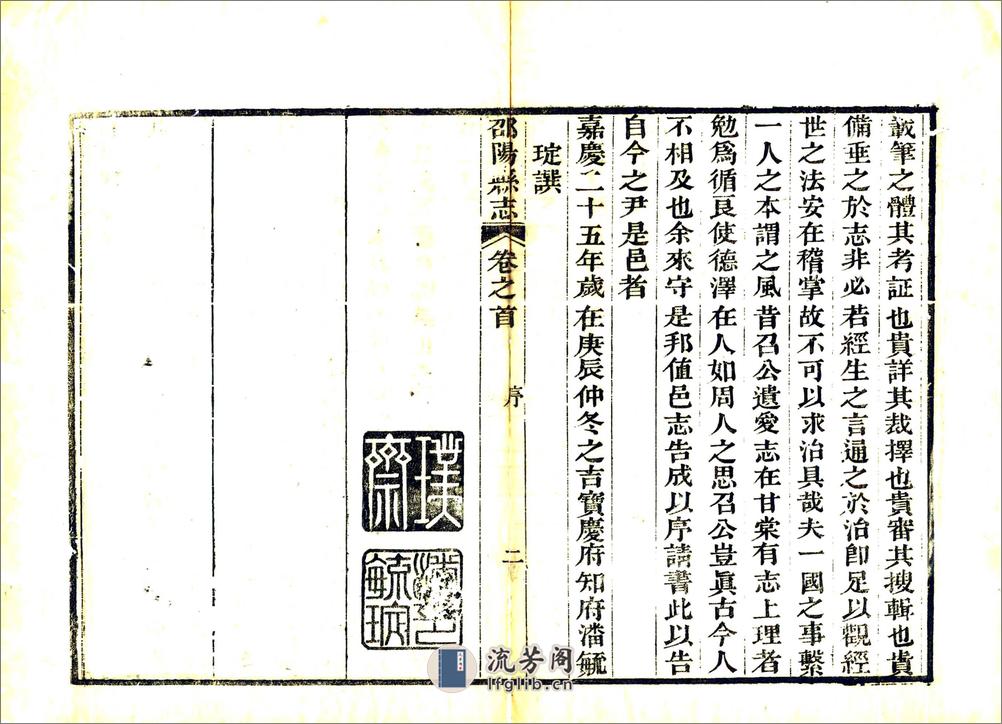 載筆之體其考証也貴詳其裁擇也貴審其搜輯也貴
備垂之於志非必若經生之言通之於治卽足以觀經
世之法安在稽掌故不可以求治具哉夫一國之事繫
一人之本謂之風昔召公遺愛志在甘棠有志上理者
勉爲循良使德澤在人如周人之思召公豈眞古今人
不相及也余來守是邦值邑志告成以序請書此以告
自今之尹是邑者
嘉慶二十五年歲在庚辰仲冬之吉寶慶府知府潘毓
珶撰
邵陽縣志
卷之首
序
二
璞齋
毓珶
流芳阁
lfglib.cn